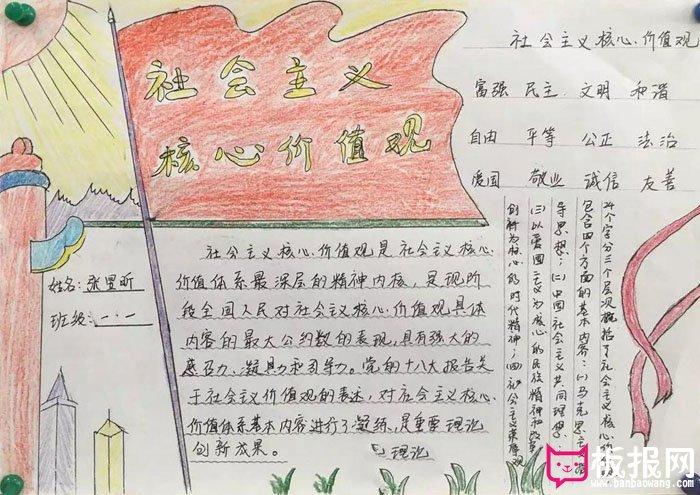 社会主义
核心价值观
社会主义核心价值观
富强 民主 文明 和谐
自由 平等 公正 法治
爱国 敬业 诚信 友善
姓名:张
班级:一.一
社会主义核心价值观是社会主义核心
价值体系最深层的精神内核,是现阶
段全国人民对社会主义核心价值观具体
内容的最大公约数的表现,具有强大的
感召力、凝具力和引导力。党的十八大报告关
于社会主义价值观的表述,对社会主义核心
价值体系基本内容进行了凝练,是重要理论
创新成果。
理论
24个字分三个层次概括了社会主义核心价值观
包含四个方面的基本内容:(一)马克思主义
导思想;(二)中国社会主义共同理想;
(三)以爱国主义为核心的民族精神和改革
创新为核心的时代精神;(四)社会主义荣辱观
板报网
www.banbaowang.com